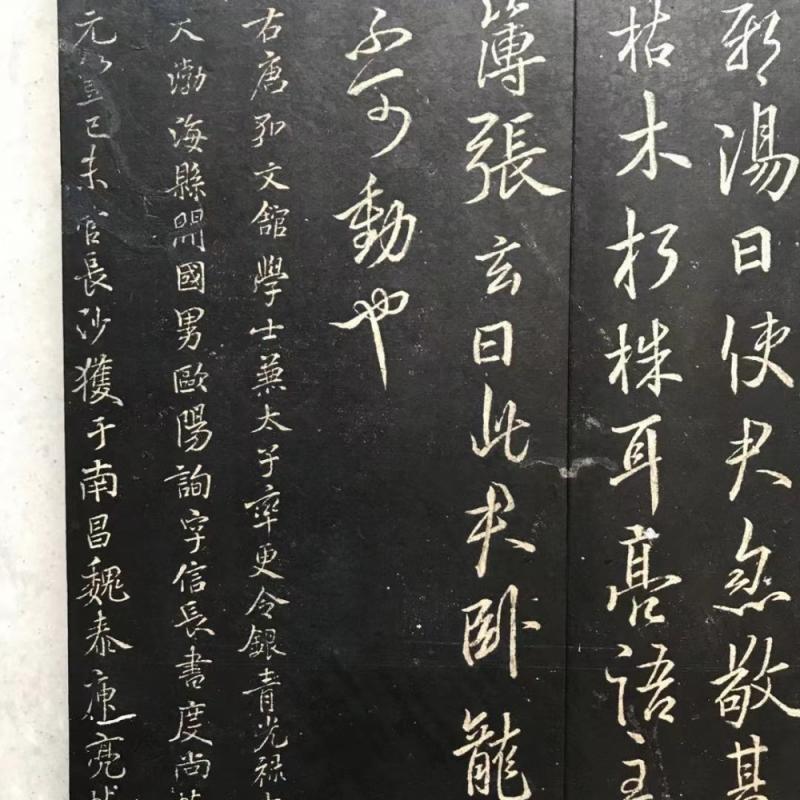 邪湯曰使君忽敬
枯木朽株耳亮語主
簿張玄曰此君卧龍
不可動也
右唐弘文館學士兼太子率更令銀青光祿
夫渤海縣開國男歐陽詢字信長書度尚
元豐己未官長沙獲于南昌魏泰庾亮